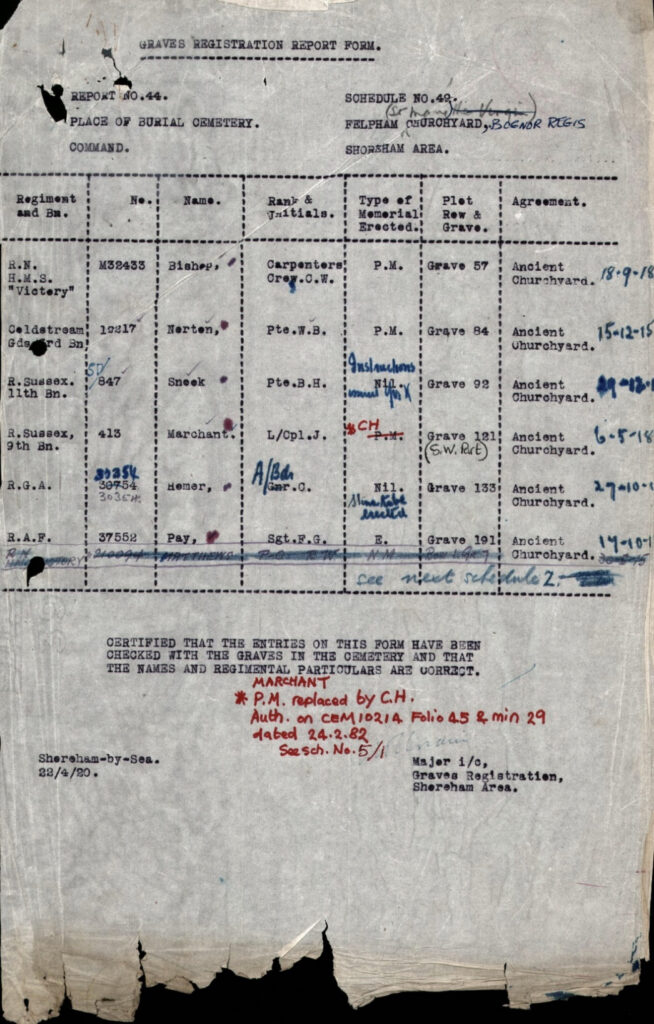 GRAVES REGISTRATION REPORT FORM.
REPORT NO.44. SCHEDULE NO.49.
(St Mary the Virgin)
PLACE OF BURIAL CEMETERY. FELPHAM CHURCHYARD, BOGNOR REGIS
COMMAND. SHOREHAM AREA.
Regiment and Bn. No. Name. Rank & Initials. Type of Memorial Erected. Plot Row & Grave. Agreement.
R.N. M32433 Bishop, Carpenters P.M. Grave 57 Ancient 18-9-18
H.M.S. Crew.C.W. Churchyard.
"Victory"
Coldstream 10217 Norton, Pte.W.B. P.M. Grave 84 Ancient 15-12-15
Gds 3rd Bn Churchyard.
Instructions
R.Sussex. SD/847 Pte.B.H. Nil. Grave 92 Ancient
11th Bn. Churchyard.
R.Sussex, 413 Marchant. L/Cpl.J. * CH P.M. Grave 121 Ancient 6-5-18
9th Bn. (S.W. Part) Churchyard.
30254 A/Bdr
R.G.A. 30754 Gnr.C. Nil. Grave 133 Ancient 27-10-1
erected Churchyard.
R.A.F. 37552 Pay, Sgt.F.G. E. Grave 191 Ancient 17-10-1
MATTHEWS Churchyard.
see next schedule 2.
CERTIFIED THAT THE ENTRIES ON THIS FORM HAVE BEEN
CHECKED WITH THE GRAVES IN THE CEMETERY AND THAT
THE NAMES AND REGIMENTAL PARTICULARS ARE CORRECT.
MARCHANT
* P.M. replaced by C.H.
Auth. on CEM10214 Folio 45 & min 29
dated 24.2.82
See sch. No. 5/1
Shoreham-by-Sea. Major i/c,
22/4/20. Graves Registration,
Shoreham Area.